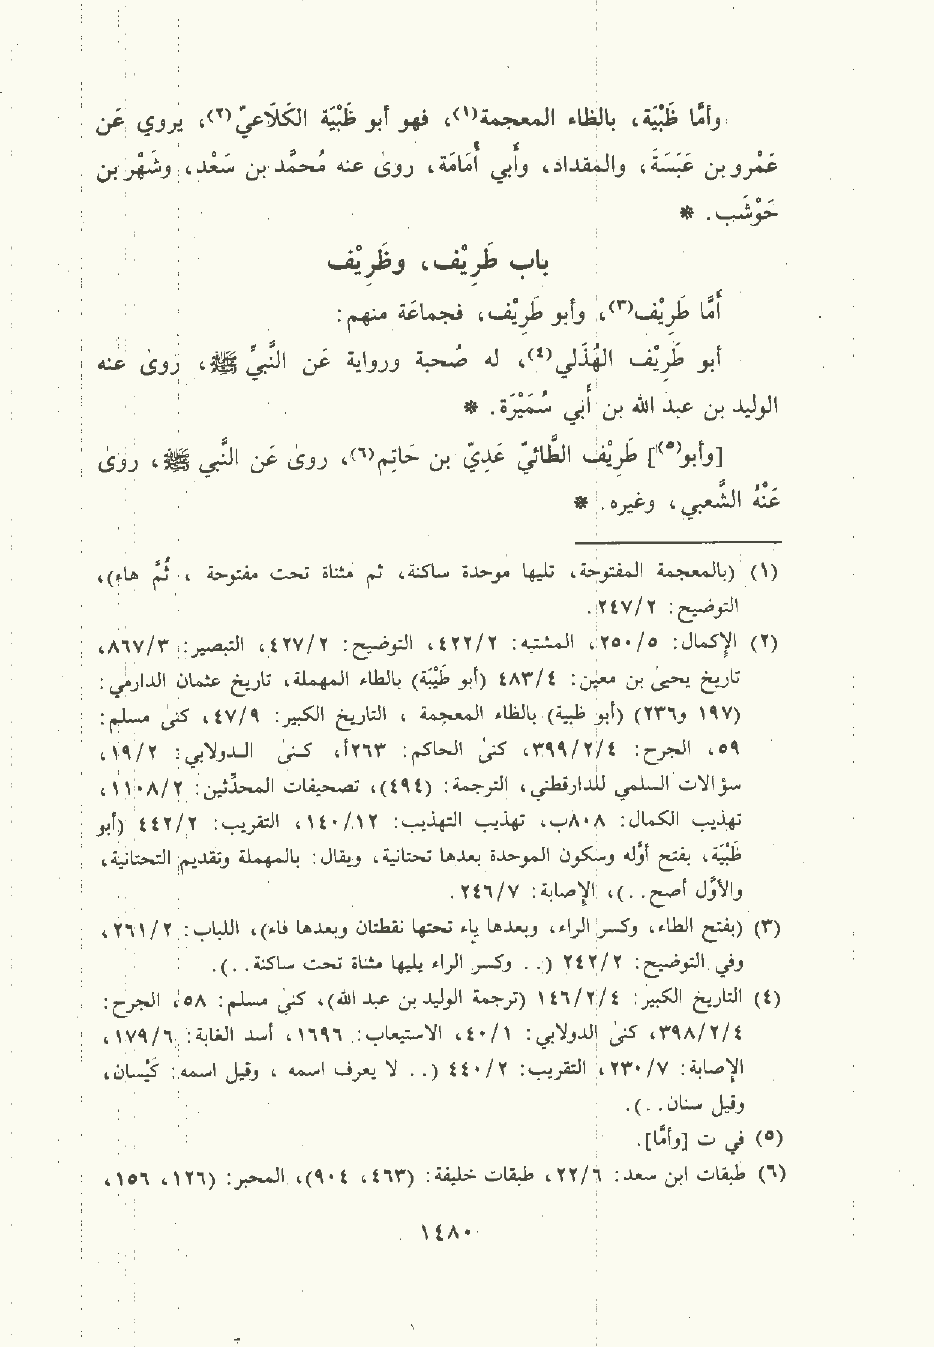 وأمَّا ظَبْيَة، بالظاء المعجمة(١)، فهو أبو ظَبْيَة الكَلَاعيّ(٢)، يروي عَن
عَمْرو بن عَبَسَة، والمقداد، وأَبي أُمَامَة، روىٰ عنه محمَّد بن سَعْد، وشَهْر بن
حَوْشَب. *
باب طَرِيْف، وظَرِيْف
أَمَّا طَرِيْف(٣)، وأبو طَرِيْف، فجماعَة منهم:
أبو طَرِيْف الهُذَلي(٤)، له صُحبة ورواية عَن النَّبيِّ ﷺ، روىٰ عنه
الوليد بن عبد الله بن أبي سُمَيْرَة. *
[وأبو(٥)] طَرِيْف الطَّائيّ عَدِيّ بن حَاتِم(٦)، روىٰ عَن النَّبي ﷺ، روىٰ
عَنْهُ الشَّعبي، وغيره. *
(١) (بالمعجمة المفتوحة، تليها موحدة ساكنة، ثم مثناة تحت مفتوحة ، ثُمَّ هاء)،
التوضيح: ٢٤٧/٢.
(٢) الإكمال: ٢٥٠/٥، المشتبه: ٤٢٢/٢، التوضيح: ٤٢٧/٢، التبصير: ٨٦٧/٣،
تاريخ يحيىٰ بن معين: ٤٨٣/٤ (أبو طَيْبَة) بالطاء المهملة، تاريخ عثمان الدارمي:
(١٩٧ و٢٣٦) (أبو ظبية) بالظاء المعجمة ، التاريخ الكبير: ٤٧/٩، كنىٰ مسلم:
٥٩، الجرح: ٣٩٩/٢/٤، كنىٰ الحاكم: ٢٦٣أ، كنىٰ الدولابي: ١٩/٢،
سؤالات السلمي للدارقطني، الترجمة: (٤٩٤)، تصحيفات المحدِّثين: ١١٠٨/٢،
تهذيب الكمال: ٨٠٨ب، تهذيب التهذيب: ١٤٠/١٢، التقريب: ٤٤٢/٢ (أبو
ظَبْيَة، بفتح أوَّله وسكون الموحدة بعدها تحتانية، ويقال: بالمهملة وتقديم التحتانية،
والأوَّل أصح. .)، الإصابة: ٢٤٦/٧.
(٣) (بفتح الطاء، وكسر الراء، وبعدها ياء تحتها نقطتان وبعدها فاء)، اللباب: ٢٦١/٢،
وفي التوضيح: ٢٤٢/٢ (. . وكسر الراء يليها مثناة تحت ساكنة. .).
(٤) التاريخ الكبير: ١٤٦/٢/٤ (ترجمة الوليد بن عبد الله)، كنىٰ مسلم: ٥٨، الجرح:
٣٩٨/٢/٤، كنىٰ الدولابي: ٤٠/١، الاستيعاب: ١٦٩٦، أسد الغابة: ١٧٩/٦،
الإصابة: ٢٣٠/٧، التقريب: ٤٤٠/٢ (. . لا يعرف اسمه ، وقيل اسمه: كَيْسان،
وقيل سنان. .).
(٥) في ت [وأمَّا].
(٦) طبقات ابن سعد: ٢٢/٦، طبقات خليفة: (٤٦٣، ٩٠٤)، المحبر: (١٢٦، ١٥٦،
١٤٨٠